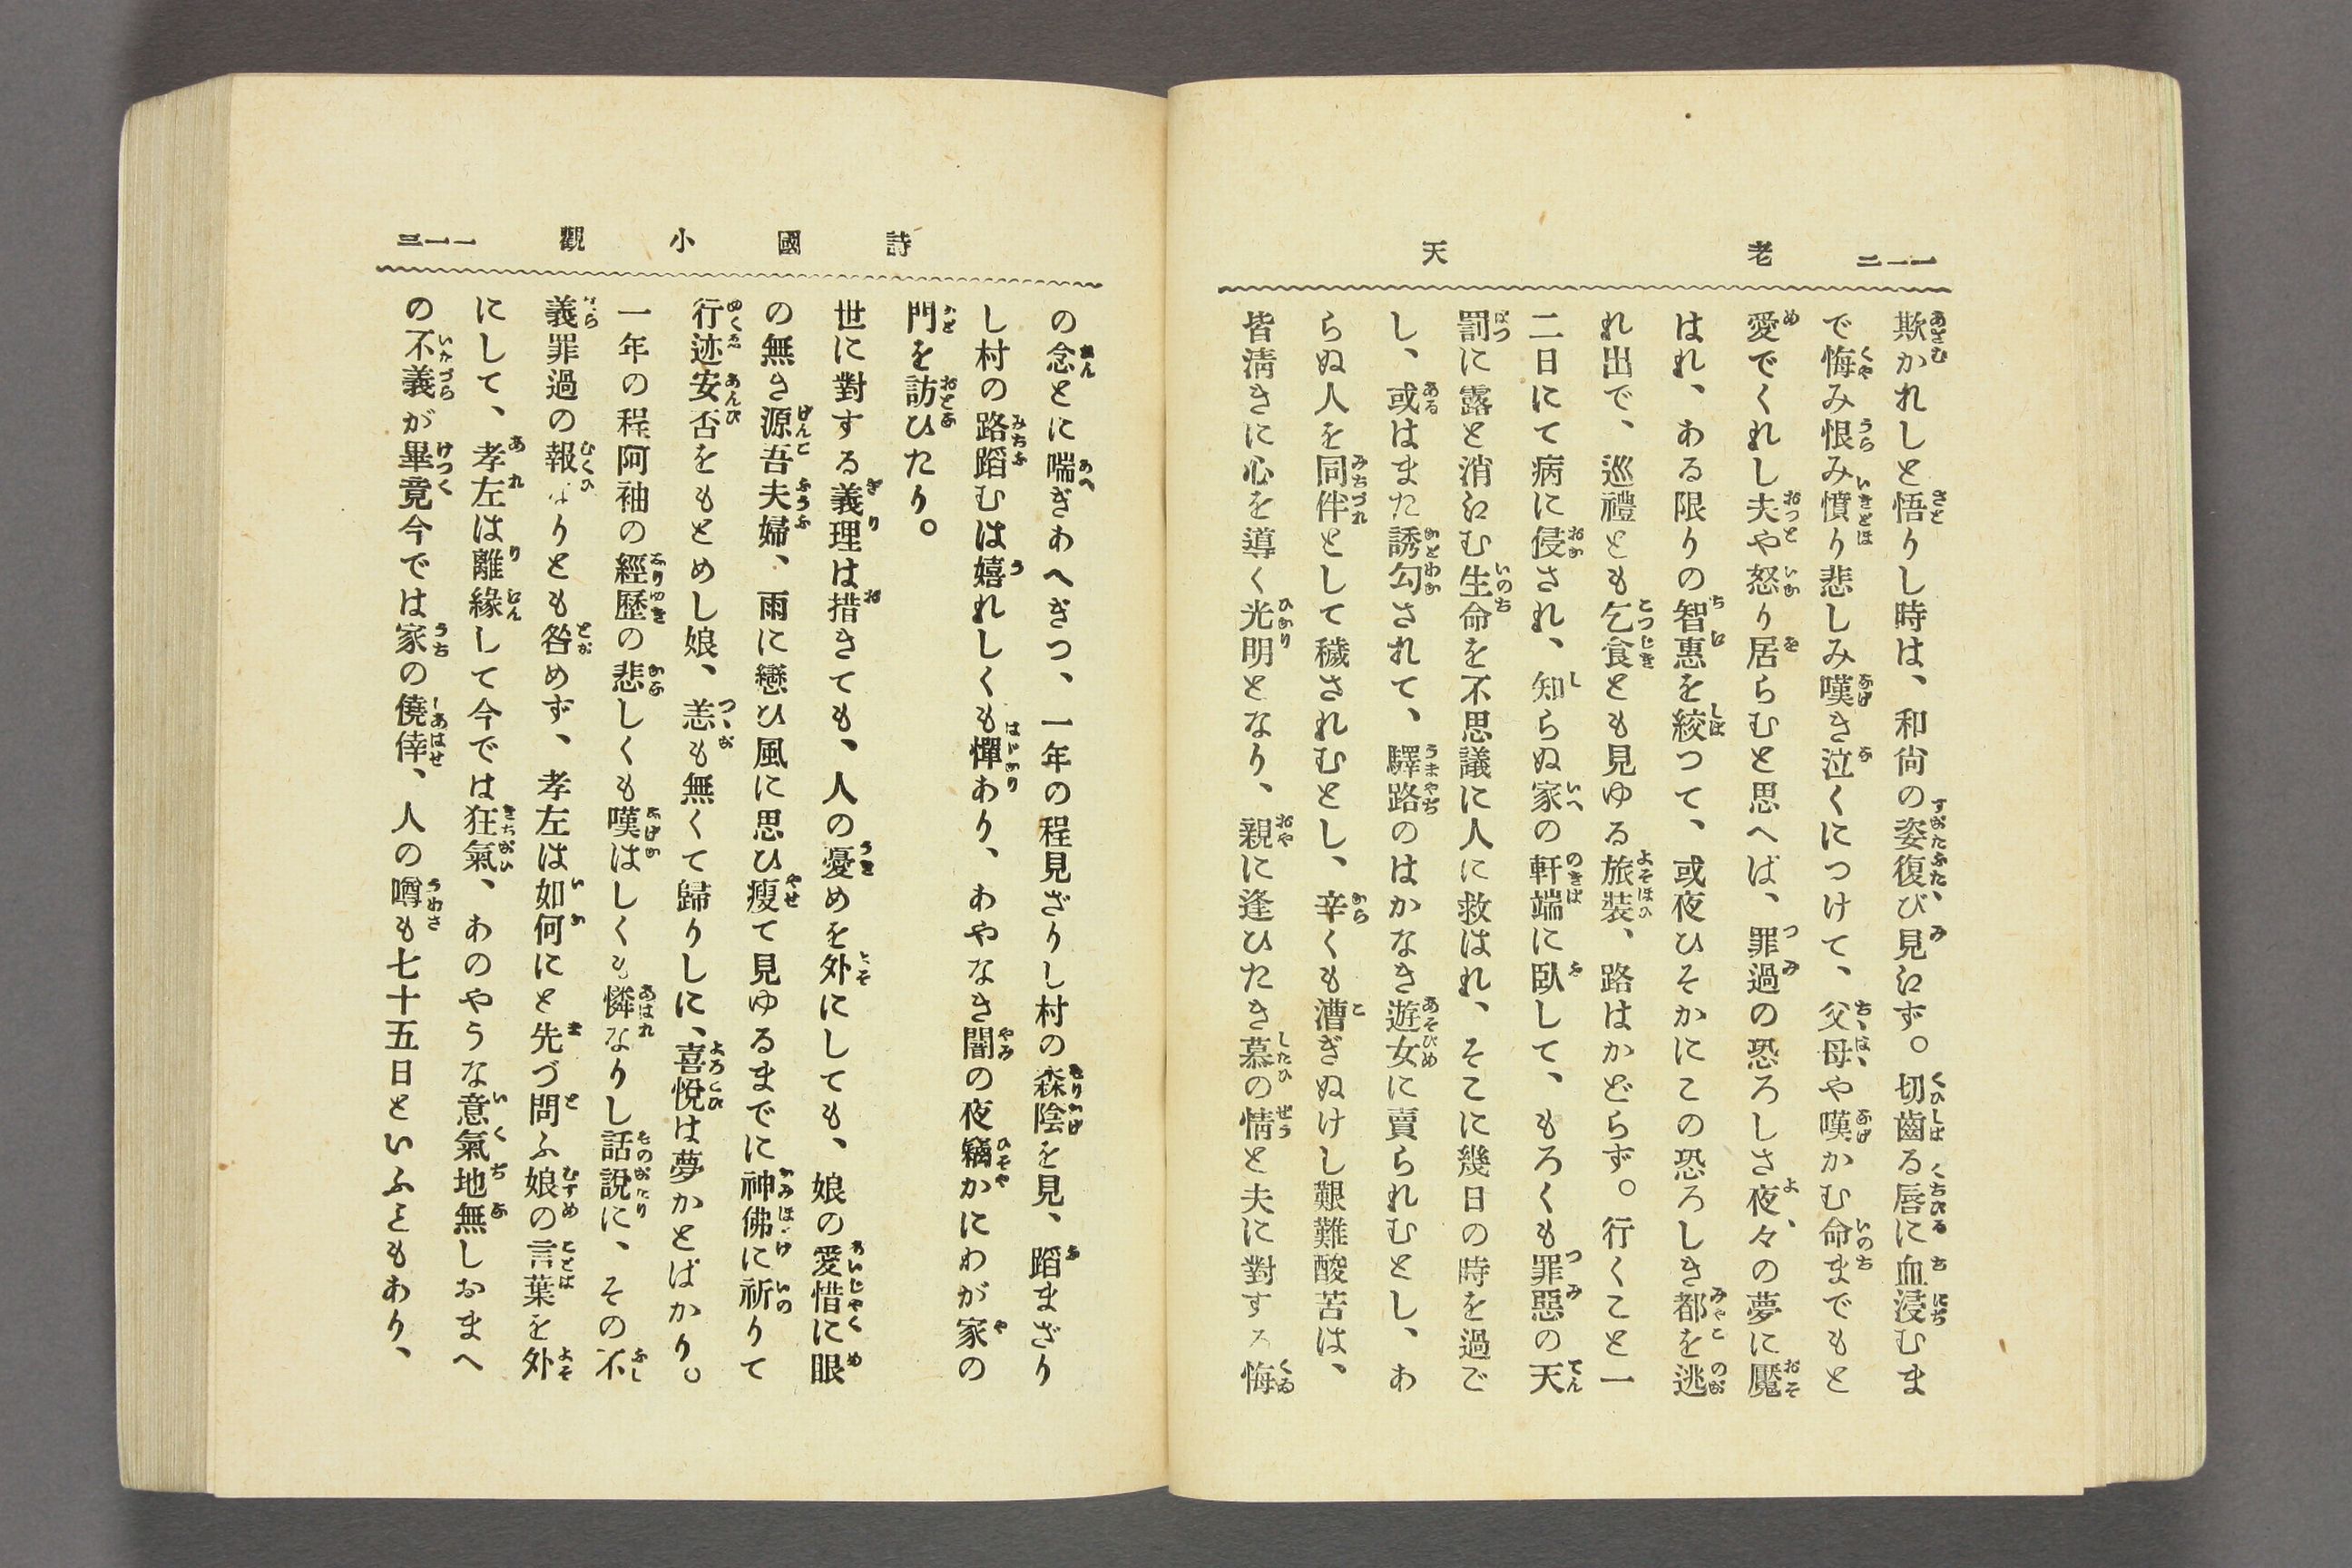 一一二　老　天
欺かれしと悟りし時は、和尙の姿復び見えず。切齒る唇に血浸むま
で悔み恨み憤り悲しみ嘆き泣くにつけて、父母や嘆かむ命までもと
愛でくれし夫や怒り居らむと思へば、罪過の恐ろしさ夜々の夢に魘
はれ、ある限りの智惠を絞つて、或夜ひそかにこの恐ろしき都を逃
れ出で、巡禮とも乞食とも見ゆる旅裝、路はかどらず。行くこと一
二日にて病に侵され、知らぬ家の軒端に臥して、もろくも罪惡の天
罰に露と消えむ生命を不思議に人に救はれ、そこに幾日の時を過ご
し、或はまた誘勾されて、驛路のはかなき遊女に賣られむとし、あ
らぬ人を同伴として穢されむとし、辛くも漕ぎぬけし艱難酸苦は、
皆淸きに心を導く光明となり、親に逢ひたき慕の情と夫に對する悔
詩國小觀　一一三
の念とに喘ぎあへぎつ、一年の程見ざりし村の森陰を見、蹈まざり
し村の路蹈むは嬉れしくも憚あり、あやなき闇の夜竊かにわが家の
門を訪ひたり。
世に對する義理は措きても、人の憂めを外にしても、娘の愛惜に眼
の無き源吾夫婦、雨に戀ひ風に思ひ瘦て見ゆるまでに神佛に祈りて
行迹安否をもとめし娘、恙も無くて歸りしに、喜悅は夢かとばかり。
一年の程阿袖の經歷の悲しくも嘆はしくも憐なりし話說に、その不
義罪過の報なりとも咎めず、孝左は如何にと先づ問ふ娘の言葉を外
にして、孝左は離緣して今では狂氣、あのやうな意氣地無しおまへ
の不義が畢竟今では家の僥倖、人の噂も七十五日といふこともあり、